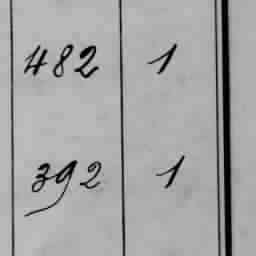 482 1
392 1